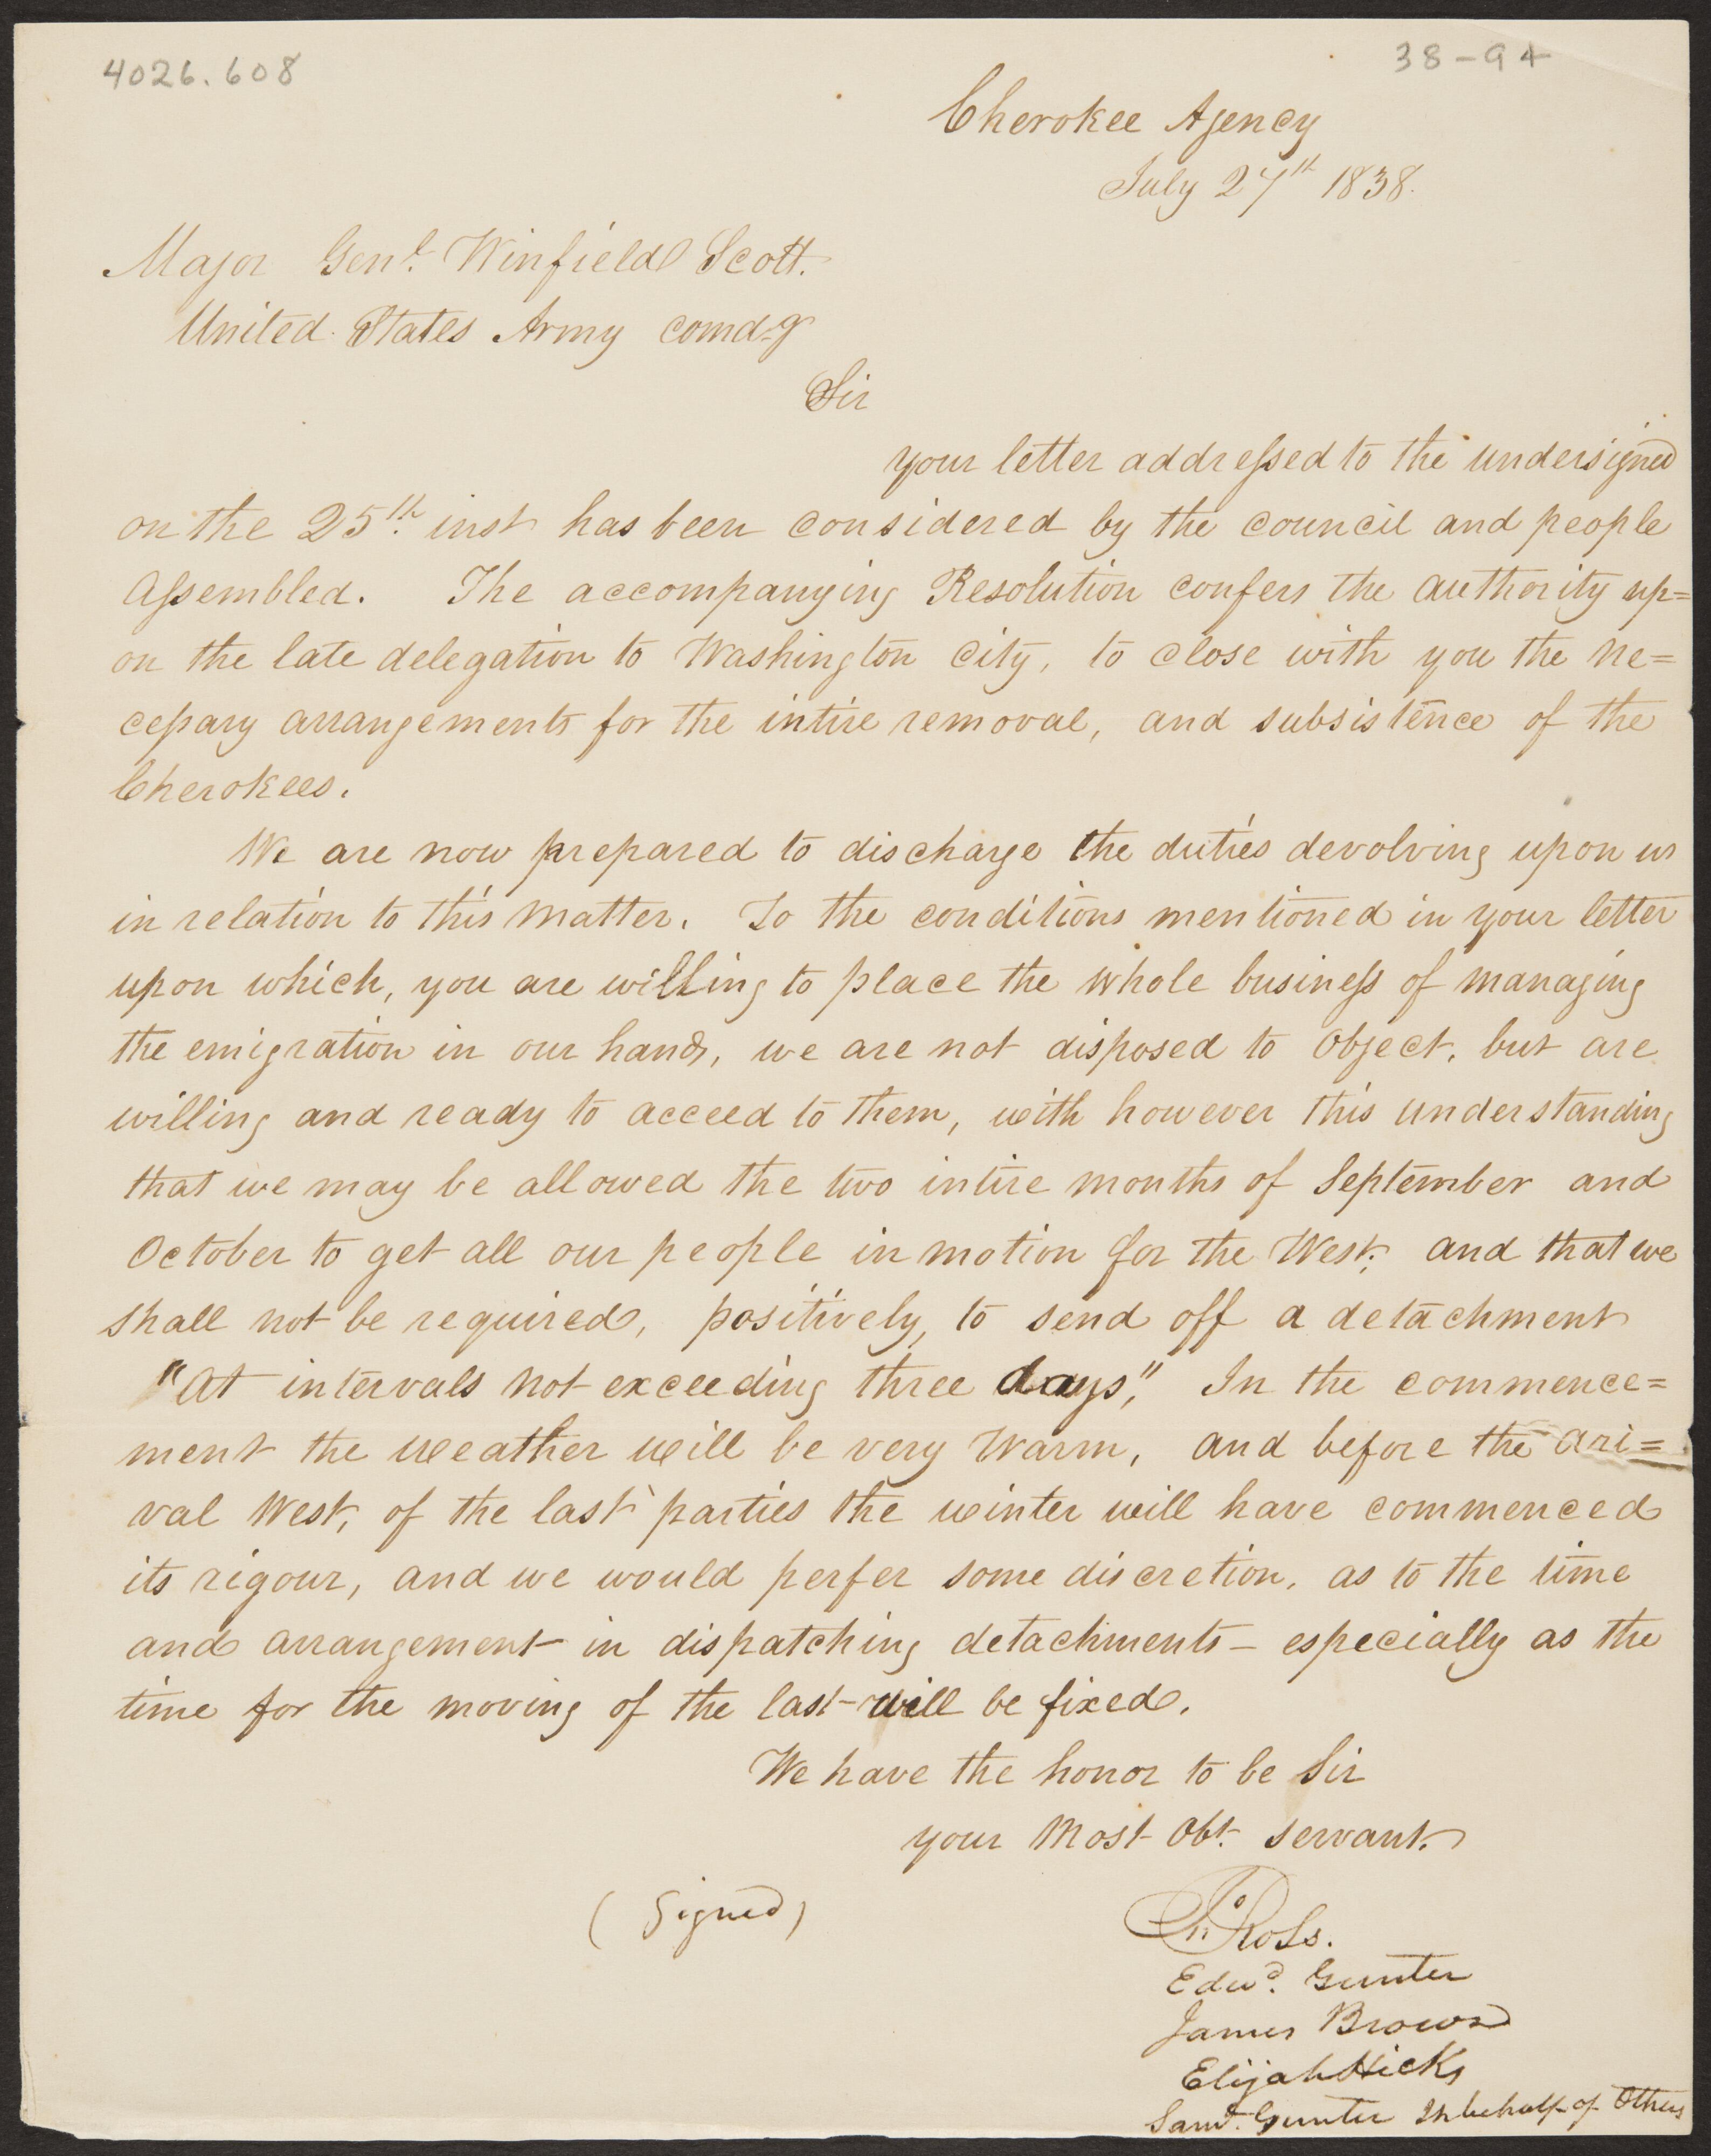 4026.608
38-94
Cherokee Agency
July 27th 1838.
Major Genl. Winfield Scott.
United States Army comdg
Sir
your letter addressed to the undersigned
on the 25th. inst has been considered by the council and people
Assembled. The accompanying Resolution confers the authority up=
on the late delegation to Washington City, to close with you the ne=
cessary arrangements for the intire removal, and subsistence of the
Cherokees.
We are now prepared to discharge the duties devolving upon us
in relation to this matter. To the conditions mentioned in your letter
upon which, you are willing to place the whole business of managing
the emigration in our hands, we are not disposed to object, but are
willing and ready to acceed to them, with however this understanding
that we may be allowed the two intire months of September and
October to get all our people in motion for the West; and that we
shall not be required, positively, to send off a detachment
"at intervals not exceeding three days," In the commence=
ment the weather will be very warm, and before the ari=
val West, of the last parties the winter will have commenced
its rigour, and we would perfer some discretion, as to the time
and arrangement in dispatching detachments - especially as the
time for the moving of the last - will be fixed.
We have the honor to be Sir
your Most Obt. Servant.
(Signed)
Jno Ross.
Edwd. Gunter
James Brown
Elijah Hicks
Saml. Gunter In behalf of Others